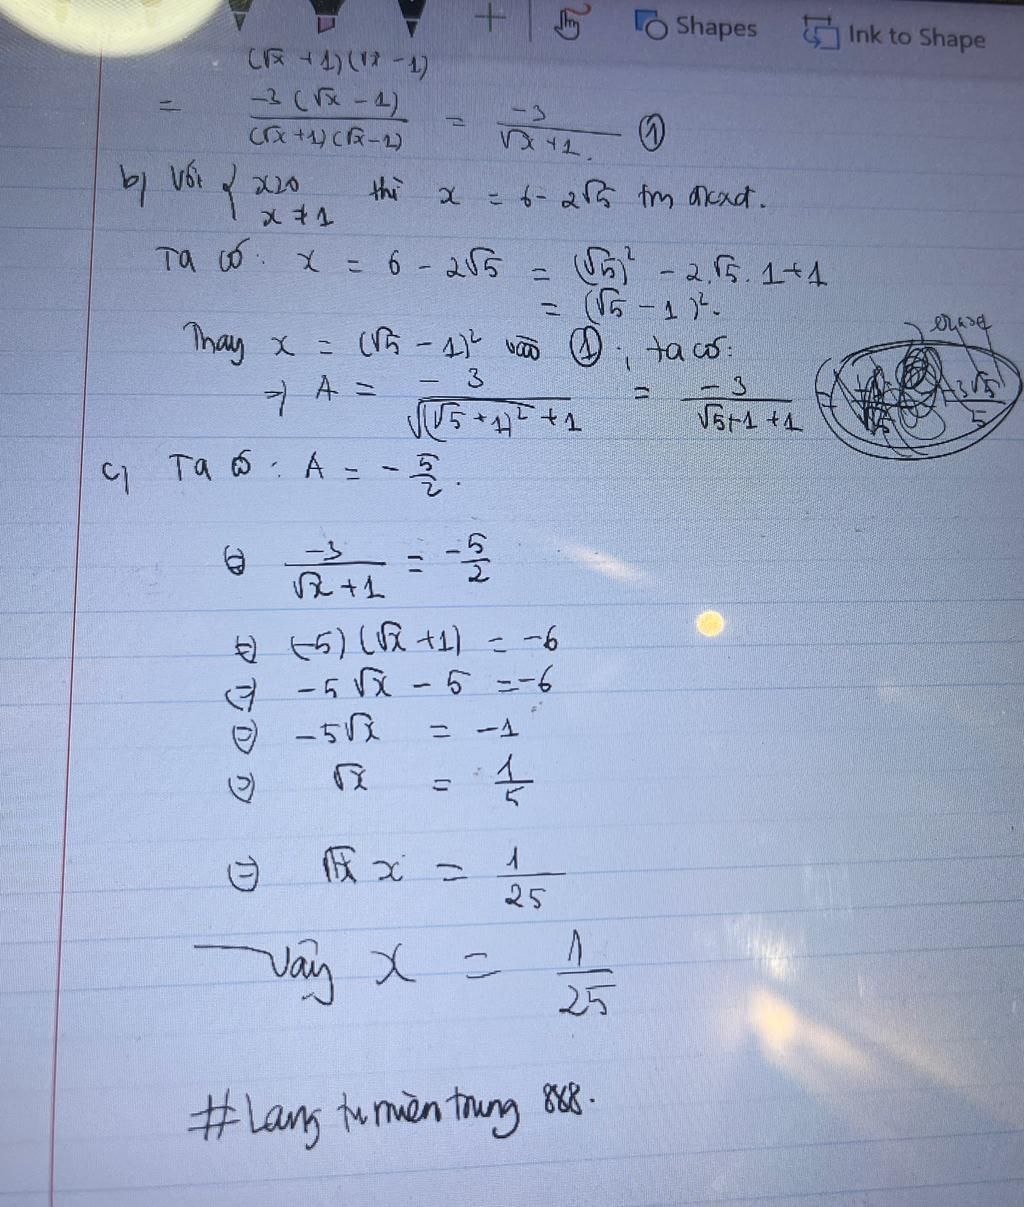 Shapes Ink to Shape
(√x + 1)(√x - 1)
= -3(√x - 1) / (√x + 1)(√x - 1) = -3 / √x + 1. ①
b) Với { x≥0 x ≠ 1 thì x = 6 - 2√5 tm đkxđ.
Ta có: x = 6 - 2√5 = (√5)² - 2.√5. 1 + 1
= (√5 - 1)².
Thay x = (√5 - 1)² vào ①, ta có:
⇒ A = -3 / √(√5 + 1)² + 1 = -3 / √5 + 1 + 1
3√5 / 5
c) Ta có: A = - 5/2.
⇔ -3 / √x + 1 = - 5/2
⇔ (-5)(√x + 1) = -6
⇔ -5√x - 5 = -6
⇔ -5√x = -1
⇔ √x = 1/5
⇔ x = 1/25
Vậy x = 1/25
#Lang tu miền trung 888.